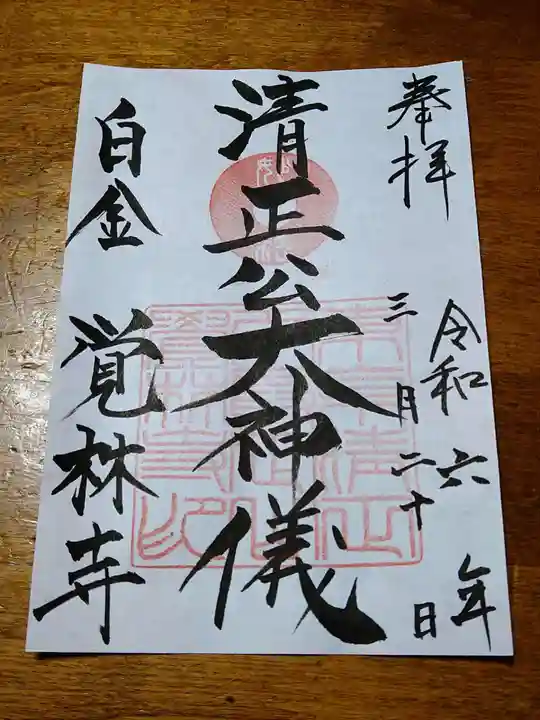 奉拝
令和六年
三月二十日
清正公大神儀
白金 覚林寺